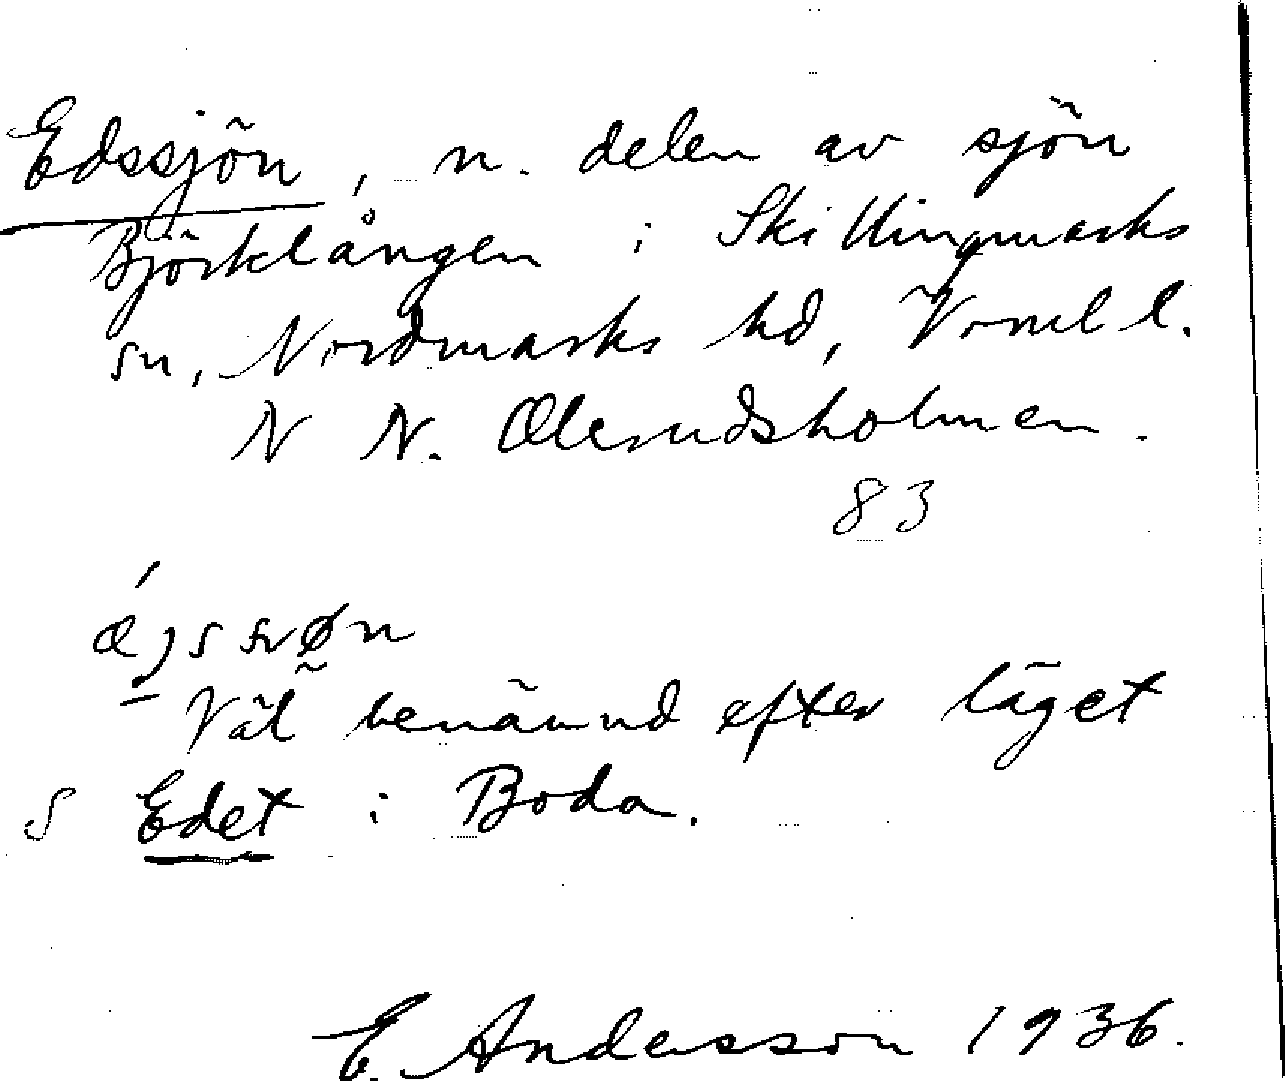 Edssjön, n. delen av sjön
Björklången i Skillingmarks
sn, Nordmarks hd, Värml l.
N N. Ølerudsholmen.
83
Väl benämnd efter läget
S Edet i Boda.
E. Andersson 1936.